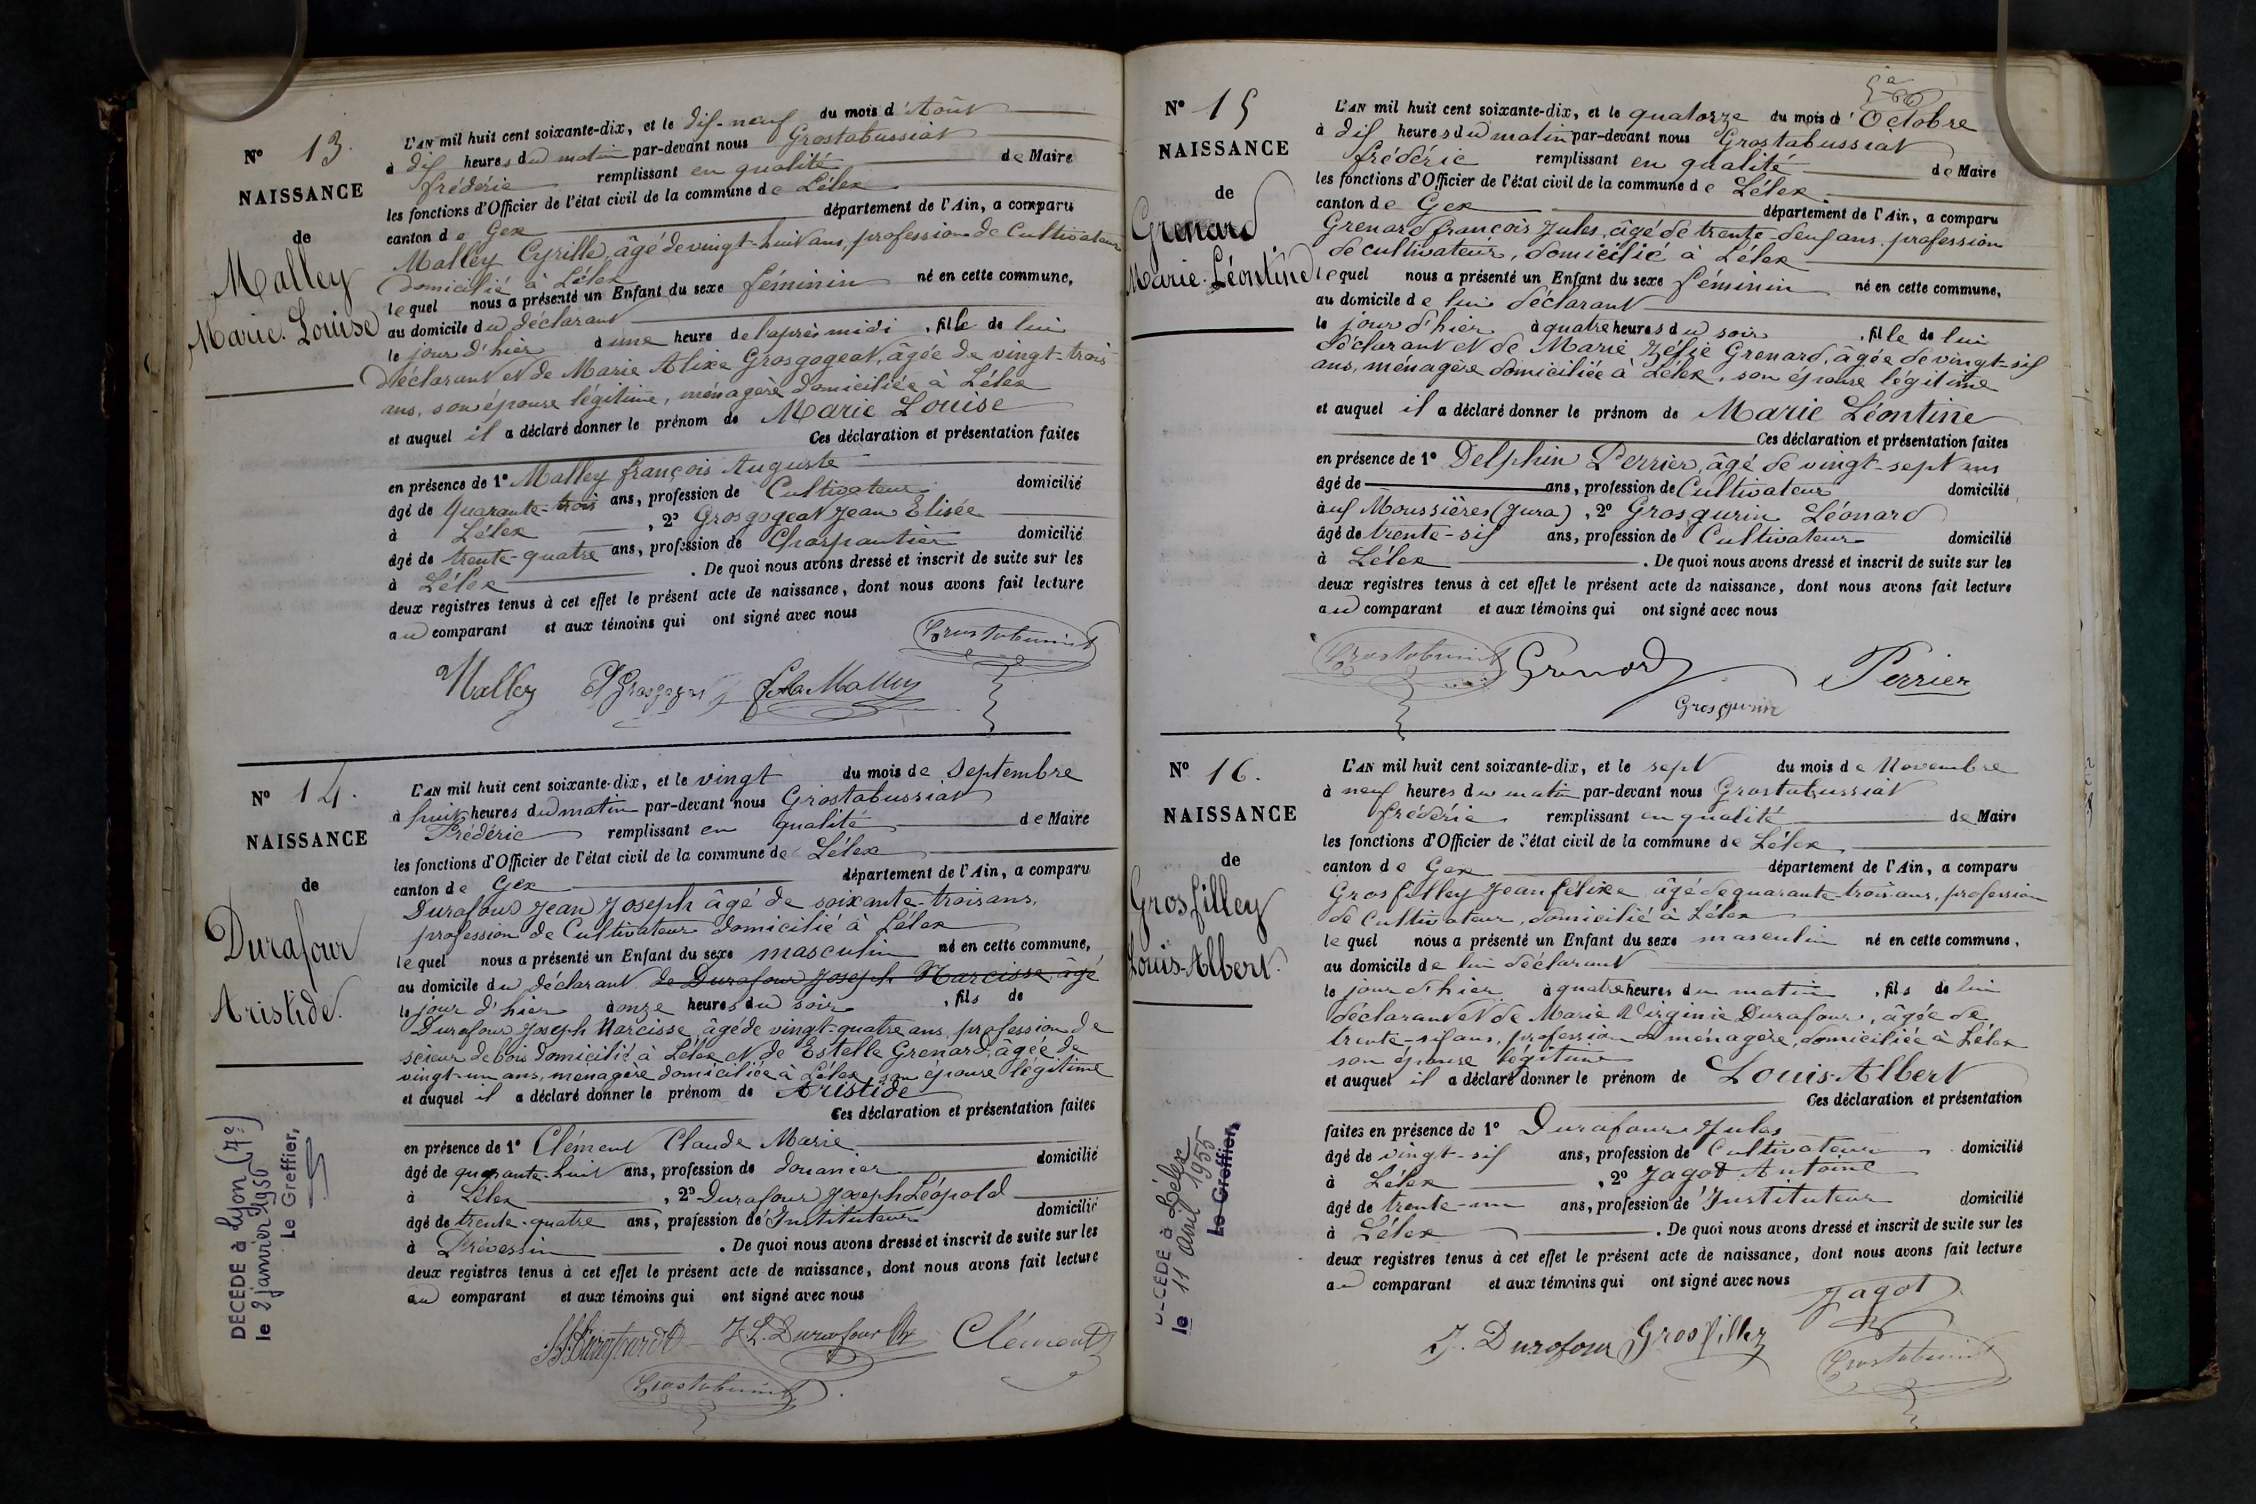 N° 13.
NAISSANCE
de
Malley
Marie Louise
L'AN mil huit cent soixante-dix, et le dix-neuf du mois d'Août
à dix heures du matin par-devant nous Grostabussiat
frédéric remplissant en qualité de Maire
les fonctions d'Officier de l'état civil de la commune de Lélex
canton de Gex département de l'Ain, a comparu
Malley Cyrille, âgé de vingt-huit ans, profession de Cultivateur
domicilié à Lélex
lequel nous a présenté un Enfant du sexe féminin né en cette commune,
au domicile du déclarant
le jour d'hier à une heure de l'après midi, fille de lui
déclarant et de Marie Alixe Grosgogeat, âgée de vingt-trois
ans, son épouse légitime, ménagère domiciliée à Lélex
et auquel il a déclaré donner le prénom de Marie Louise
Ces déclaration et présentation faites
en présence de 1° Malley françois Auguste
âgé de quarante-trois ans, profession de Cultivateur domicilié
à Lélex, 2° Grosgogeat Jean Elisée
âgé de trente-quatre ans, profession de Charpentier domicilié
à Lélex. De quoi nous avons dressé et inscrit de suite sur les
deux registres tenus à cet effet le présent acte de naissance, dont nous avons fait lecture
au comparant et aux témoins qui ont signé avec nous
Grostabussiat
Malley Grosgogeat Malley
N° 14.
NAISSANCE
de
Durafour
Aristide.
DÉCÉDÉ à Lyon (7e)
le 2 janvier 1950
Le Greffier,
L'AN mil huit cent soixante-dix, et le vingt du mois de Septembre
à huit heures du matin par-devant nous Grostabussiat
Frédéric remplissant en qualité de Maire
les fonctions d'Officier de l'état civil de la commune de Lélex
canton de Gex département de l'Ain, a comparu
Durafour Jean Joseph âgé de soixante-trois ans,
profession de Cultivateur domicilié à Lélex
lequel nous a présenté un Enfant du sexe masculin né en cette commune,
au domicile du déclarant de Durafour Joseph Narcisse, âgé
le jour d'hier à onze heures du soir, fils de
Durafour Joseph Narcisse, âgé de vingt-quatre ans, profession de
scieur de bois domicilié à Lélex et de Estelle Grenard, âgée de
vingt-un ans, ménagère domiciliée à Lélex son épouse légitime
et auquel il a déclaré donner le prénom de Aristide
Ces déclaration et présentation faites
en présence de 1° Clément Claude Marie
âgé de quarante-huit ans, profession de douanier domicilié
à Lélex, 2° Durafour Joseph Léopold
âgé de trente-quatre ans, profession de Instituteur domicilié
à Prévessin. De quoi nous avons dressé et inscrit de suite sur les
deux registres tenus à cet effet le présent acte de naissance, dont nous avons fait lecture
au comparant et aux témoins qui ont signé avec nous
J. L. Durafour Clément
Grostabussiat
N° 15
NAISSANCE
de
Grenard
Marie Léontine
L'AN mil huit cent soixante-dix, et le quatorze du mois d'Octobre
à dix heures du matin par-devant nous Grostabussiat
frédéric remplissant en qualité de Maire
les fonctions d'Officier de l'état civil de la commune de Lélex
canton de Gex département de l'Ain, a comparu
Grenard françois Jules, âgé de trente-deux ans, profession
de cultivateur, domicilié à Lélex
lequel nous a présenté un Enfant du sexe féminin né en cette commune,
au domicile de lui déclarant
le jour d'hier à quatre heures du soir, fille de lui
déclarant et de Marie Zélie Grenard, âgée de vingt-six
ans, ménagère domiciliée à Lélex, son épouse légitime
et auquel il a déclaré donner le prénom de Marie Léontine
Ces déclaration et présentation faites
en présence de 1° Delphin Perrier, âgé de vingt-sept ans
âgé de ans, profession de Cultivateur domicilié
aux Moussières (Jura), 2° Grosgurin Léonard
âgé de trente-six ans, profession de Cultivateur domicilié
à Lélex. De quoi nous avons dressé et inscrit de suite sur les
deux registres tenus à cet effet le présent acte de naissance, dont nous avons fait lecture
au comparant et aux témoins qui ont signé avec nous
Grostabussiat Grenard Perrier
Grosgurin
N° 16.
NAISSANCE
de
Grosfilley
Louis-Albert.
DÉCÉDÉ à Lélex
le 11 avril 1955
Le Greffier,
L'AN mil huit cent soixante-dix, et le sept du mois de Novembre
à neuf heures du matin par-devant nous Grostabussiat
frédéric remplissant en qualité de Maire
les fonctions d'Officier de l'état civil de la commune de Lélex
canton de Gex département de l'Ain, a comparu
Grosfilley Jean félixe âgé de quarante-trois ans, profession
de Cultivateur, domicilié à Lélex
lequel nous a présenté un Enfant du sexe masculin né en cette commune,
au domicile de lui déclarant
le jour d'hier à quatre heures du matin, fils de lui
déclarant et de Marie Virginie Durafour, âgée de
trente-six ans, profession de ménagère, domiciliée à Lélex
son épouse légitime
et auquel il a déclaré donner le prénom de Louis-Albert
Ces déclaration et présentation
faites en présence de 1° Durafour Jules
âgé de vingt-six ans, profession de Cultivateur domicilié
à Lélex, 2° Jagot Antoine
âgé de trente-un ans, profession de Instituteur domicilié
à Lélex. De quoi nous avons dressé et inscrit de suite sur les
deux registres tenus à cet effet le présent acte de naissance, dont nous avons fait lecture
au comparant et aux témoins qui ont signé avec nous
Jagot
J. Durafour Grosfilley
Grostabussiat